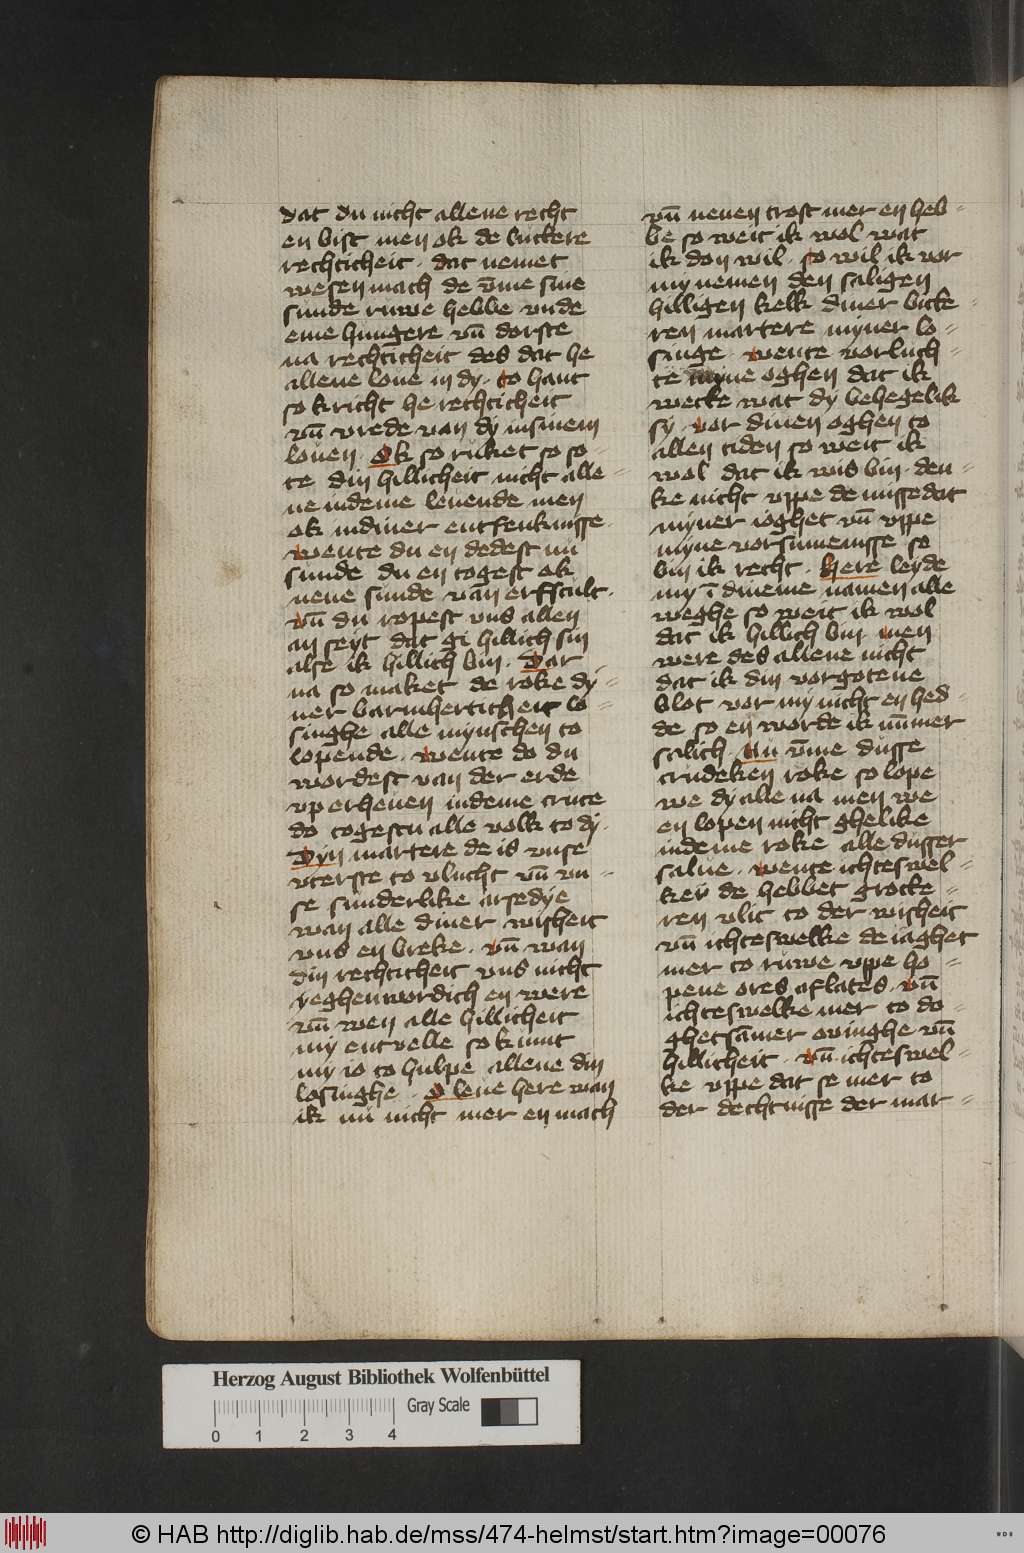 dat du nicht allene recht
en bist men ok de luttere
rechticheit · dat nemet
wesen mach de v̄me sine
sunde ruwe hebbe vnde
eme hungere vn̄ dorste
na rechticheit des dat he
allene loue in dy · to hant
so kricht he rechticheit
vn̄ vrede van dy in sinem
louen · Ok so ruket so so-
te din hillicheit nicht alle=
ne in deme leuende men
ok in diner entfenknisse ·
wente du en dedest nu
sunde du en togest ok
nene sunde van erfscult ·
vn̄ du ropest vns allen
an seyt dat gi hillich sin
alse ik hillich bin · Dar-
na so maket de roke dy=
ner barmherticheit lo=
singhe alle mynschen to
lopende · wente do du
wordest van der erde
vp erheuen in deme cruce
do togestu alle volk to dy ·
Dyn martere de is vnse
vterste to vlucht vn̄ vn=
se sunderlike arsedye
wan alle diner wisheit
vns en breke · vn̄ wan
din rechticheit vns nicht
yeghenwordich en were
vn̄ wen alle hillicheit
my entuelle so kumt
my io to hulpe allene din
losinghe · O leue here wan
ik nu nicht mer en mach
vn̄ nenen trost mer en heb=
be so weit ik wol wat
ik don wil · so wil ik vor
my nemen den saligen
hilligen kelk diner bitte=
ren martere myner lo=
singe · wente vorluch=
te myne oghen dat ik
wette wat dy behegelik
sy · vor dinen oghen to
allen tiden so weit ik
wol dat ik wis bin · den=
ke nicht vppe de missedat
myner ioghet vn̄ vppe
myne vorsumenisse so
bin ik recht · Here leyde
my ī dineme namen alle
weghe so weit ik wol
dat ik hillich bin · men
were des allene nicht
dat ik din vorgotene
blot vor my nicht en hed=
de so en worde ik nūmer
salich · Nu v̄me dusse
crudeken roke so lope
we dy alle na men we
en lopen nicht ghelike
in deme roke alle dusser
salue · wente ichteswel=
key de hebbet grote=
ren vlit to der wisheit
vn̄ ichteswelke de iaghet
mer to ruwe vppe ho=
pene ores aflates · vn̄
ichteswelke mer to do=
ghetsāmer ouinghe vn̄
hillicheit · vn̄ ichteswel=
ke vppe dat se mer to
der dechtnisse der mar=
Herzog August Bibliothek Wolfenbüttel
Gray Scale
0 1 2 3 4
© HAB http://diglib.hab.de/mss/474-helmst/start.htm?image=00076
WDB